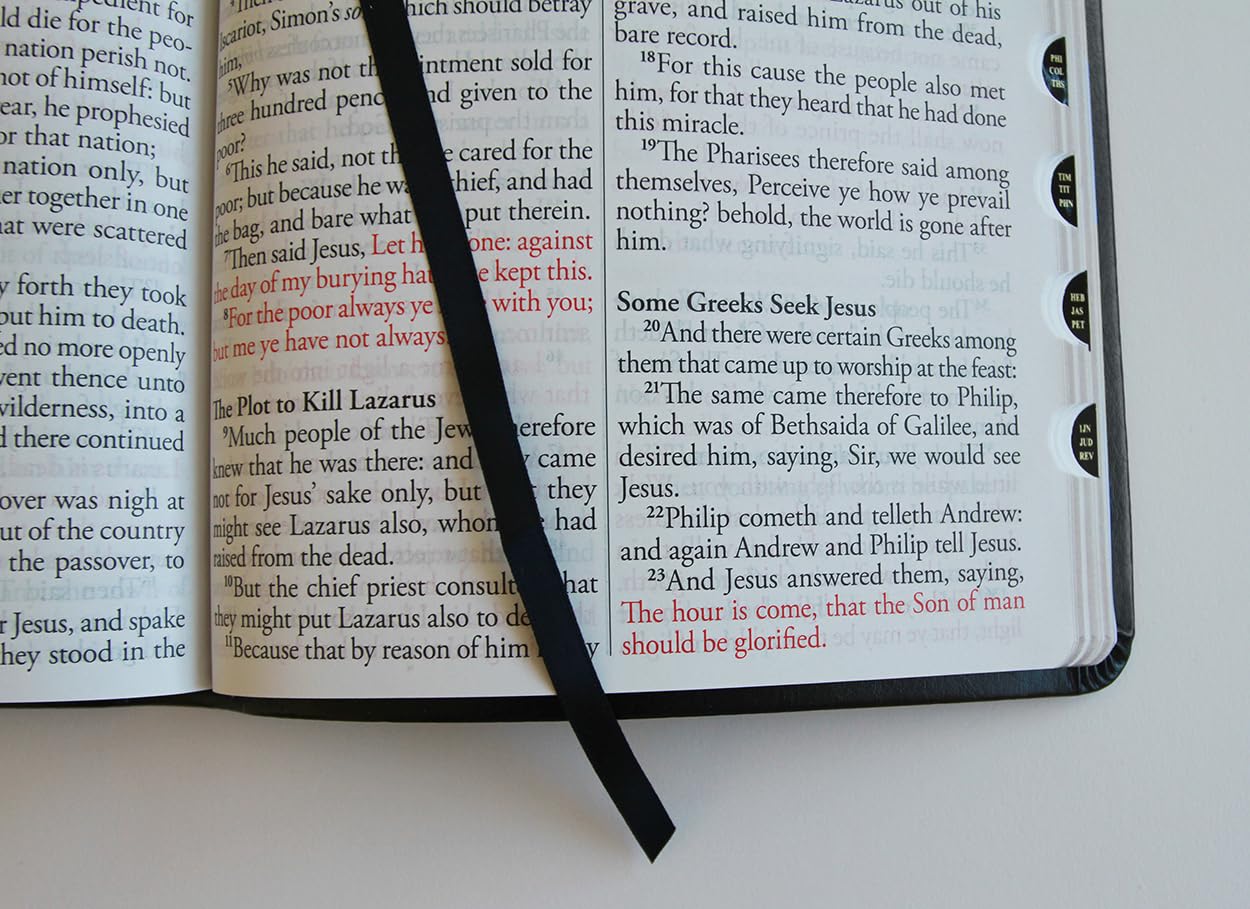 pedient for
ld die for the peo-
nation perish not.
not of himself: but
ear, he prophesied
or that nation;
nation only, but
er together in one
at were scattered
y forth they took
put him to death.
ed no more openly
vent thence unto
vilderness, into a
d there continued
over was nigh at
ut of the country
the passover, to
r Jesus, and spake
hey stood in the
4Then
Iscariot, Simon's so hich should betray
him,
5Why was not th intment sold for
three hundred penc nd given to the
poor?
6This he said, not th e cared for the
poor; but because he wa thief, and had
the bag, and bare what put therein.
7Then said Jesus, Let h one: against
the day of my burying ha e kept this.
8For the poor always ye with you;
but me ye have not always.
The Plot to Kill Lazarus
9Much people of the Jew herefore
knew that he was there: and y came
not for Jesus' sake only, but they
might see Lazarus also, whom had
raised from the dead.
10But the chief priest consult hat
they might put Lazarus also to de
11Because that by reason of him y
Lazarus out of his
grave, and raised him from the dead,
bare record.
18For this cause the people also met
him, for that they heard that he had done
this miracle.
19The Pharisees therefore said among
themselves, Perceive ye how ye prevail
nothing? behold, the world is gone after
him.
Some Greeks Seek Jesus
20And there were certain Greeks among
them that came up to worship at the feast:
21The same came therefore to Philip,
which was of Bethsaida of Galilee, and
desired him, saying, Sir, we would see
Jesus.
22Philip cometh and telleth Andrew:
and again Andrew and Philip tell Jesus.
23And Jesus answered them, saying,
The hour is come, that the Son of man
should be glorified.
PHI
COL
THS
TIM
TIT
PHN
HEB
JAS
PET
IJN
JUD
REV